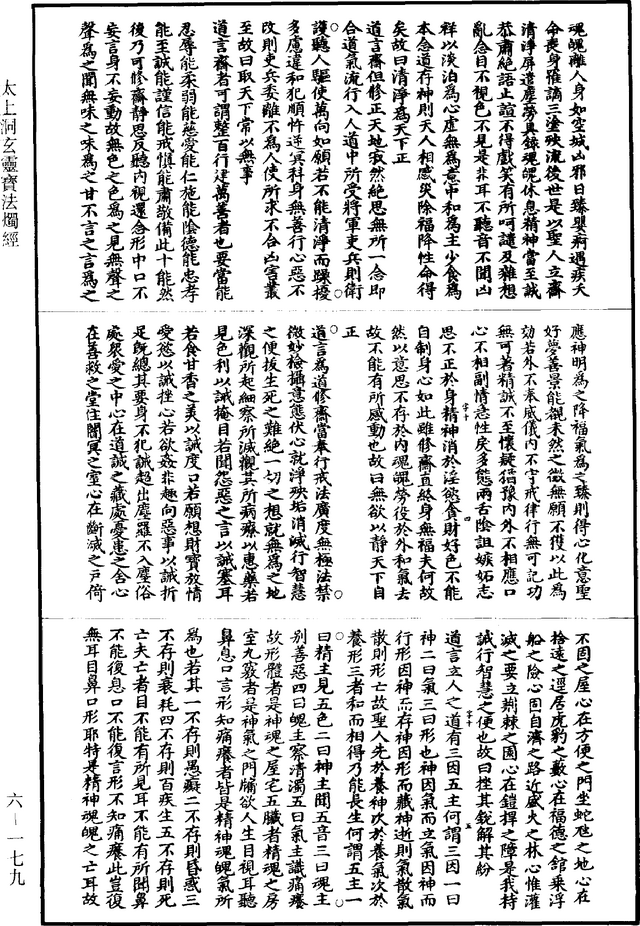 太上洞玄靈寶法燭經
六－一七九
魂魄離人身如空城凶邪日臻嬰痾遇疾夭
命喪身罹謫三塗殃流後世是以聖人立齋
清淨屏遣塵勞具録魂魄休息精神當至誠
恭肅絶語止諠不得戲笑有所呵譴及雜想
亂念目不視色不見是非耳不聽音不聞凶
祥以淡泊爲心虛無爲意中和爲主少食爲
本念道存神則天人相感災除福降性命得
矣故曰清淨爲天下正
道言齋但修正天地寂然絶思無所一念即
合道氣流行入人道中所受將軍吏兵則衛
護聽人驅使萬向如願若不能清淨而躁擾
多慮違和犯順忤逆冥科身無善行心惡不
改則吏兵委離不爲人使所求不合凶害叢
至故曰取天下常以無事
道言齋者可謂整百行建萬善者也要當能
忍辱能柔弱能慈愛能仁施能陰德能忠孝
能至誠能謹信能戒慎能肅敬備此十能然
後乃可修齋静思反聽內視還念形中口不
妄言身不妄動故無色之色爲之見無聲之
聲爲之聞無味之味爲之甘不言之言爲之
應神明爲之降福氣爲之臻則得心化意聖
好夢善景能覩未然之徵無願不獲以此爲
効若外不奉威儀內不守戒律行無可記功
無可著精誠不至懷疑猶豫內外不相應口
心不相副情意性戾多態兩舌陰詛嫉妬志
思不正於身精神消於淫慾貪財好色不能
自制身心如此雖修齋直終身無福夫何故
然以意思不存於內魂魄勞役於外和氣去
故不能有所感動也故曰無欲以靜天下自
正
道言爲道修齋當奉行戒法廣度無極法禁
微妙檢攝意態伏心就淨殃垢消滅行智慧
之便拔生死之難絶一切之想就無爲之地
深觀所起細察所滅觀其所病療以惠藥若
見色利以誠掩目若聞怨惡之言以誡塞耳
若食甘香之美以誡度口若願想財寶放情
愛慾以誡挫心若欲姦非趣向惡事以誡折
足既總其要身不犯誡超出塵羅不入塵俗
處衆愛之中心在道誠之藏處憂患之舍心
在善救之堂住闇冥之室心在斷滅之戶倚
不固之屋心在方便之門坐蛇虺之地心在
捨遠之逕居虎豹之藪心在福德之舘乗浮
船之險心固自濟之路近盛火之林心惟灌
滅之要立荊棘之園心在鎧捍之障是我持
誡行智慧之便也故曰挫其鋭解其紛
道言立人之道有三因五主何謂三因一曰
神二曰氣三曰形也神因氣而立氣因神而
行形因神而存神因形而藏神逝則氣散氣
散則形亡故聖人先於養神次於養氣次於
養形三者和而相得乃能長生何謂五主一
曰精主見五色二曰神主聞五音三曰魂主
别善惡四曰魄主察清濁五曰氣主識痛癢
故形體者是神魂之屋宅五臟者精魂之房
室九竅者是神氣之門牖欲人生目視耳聽
鼻息口言形知痛癢者皆是精神魂魄氣所
爲也若其一不存則愚癡二不存則昏惑三
不存則衰耗四不存則百疾生五不存則死
亡夫亡者目不能有所見耳不能有所聞鼻
不能復息口不能復言形不知痛癢此豈復
無耳目鼻口形耶特是精神魂魄之亡耳故